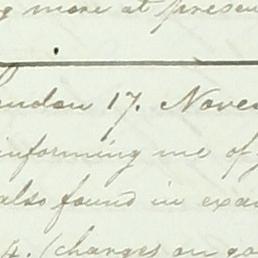 g more at presen
London 17. Nove
informing me of
also found in exa
4. (changes on go